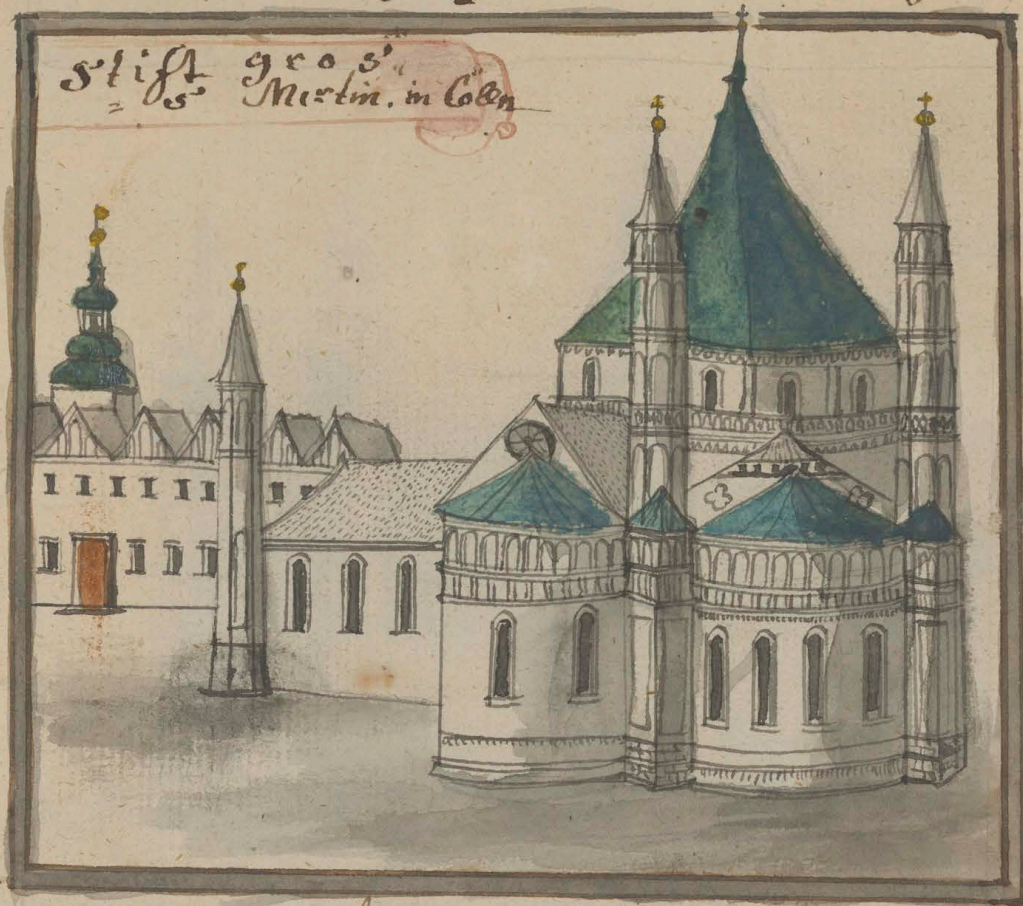 Stift gros
S Mertin. in Cölln